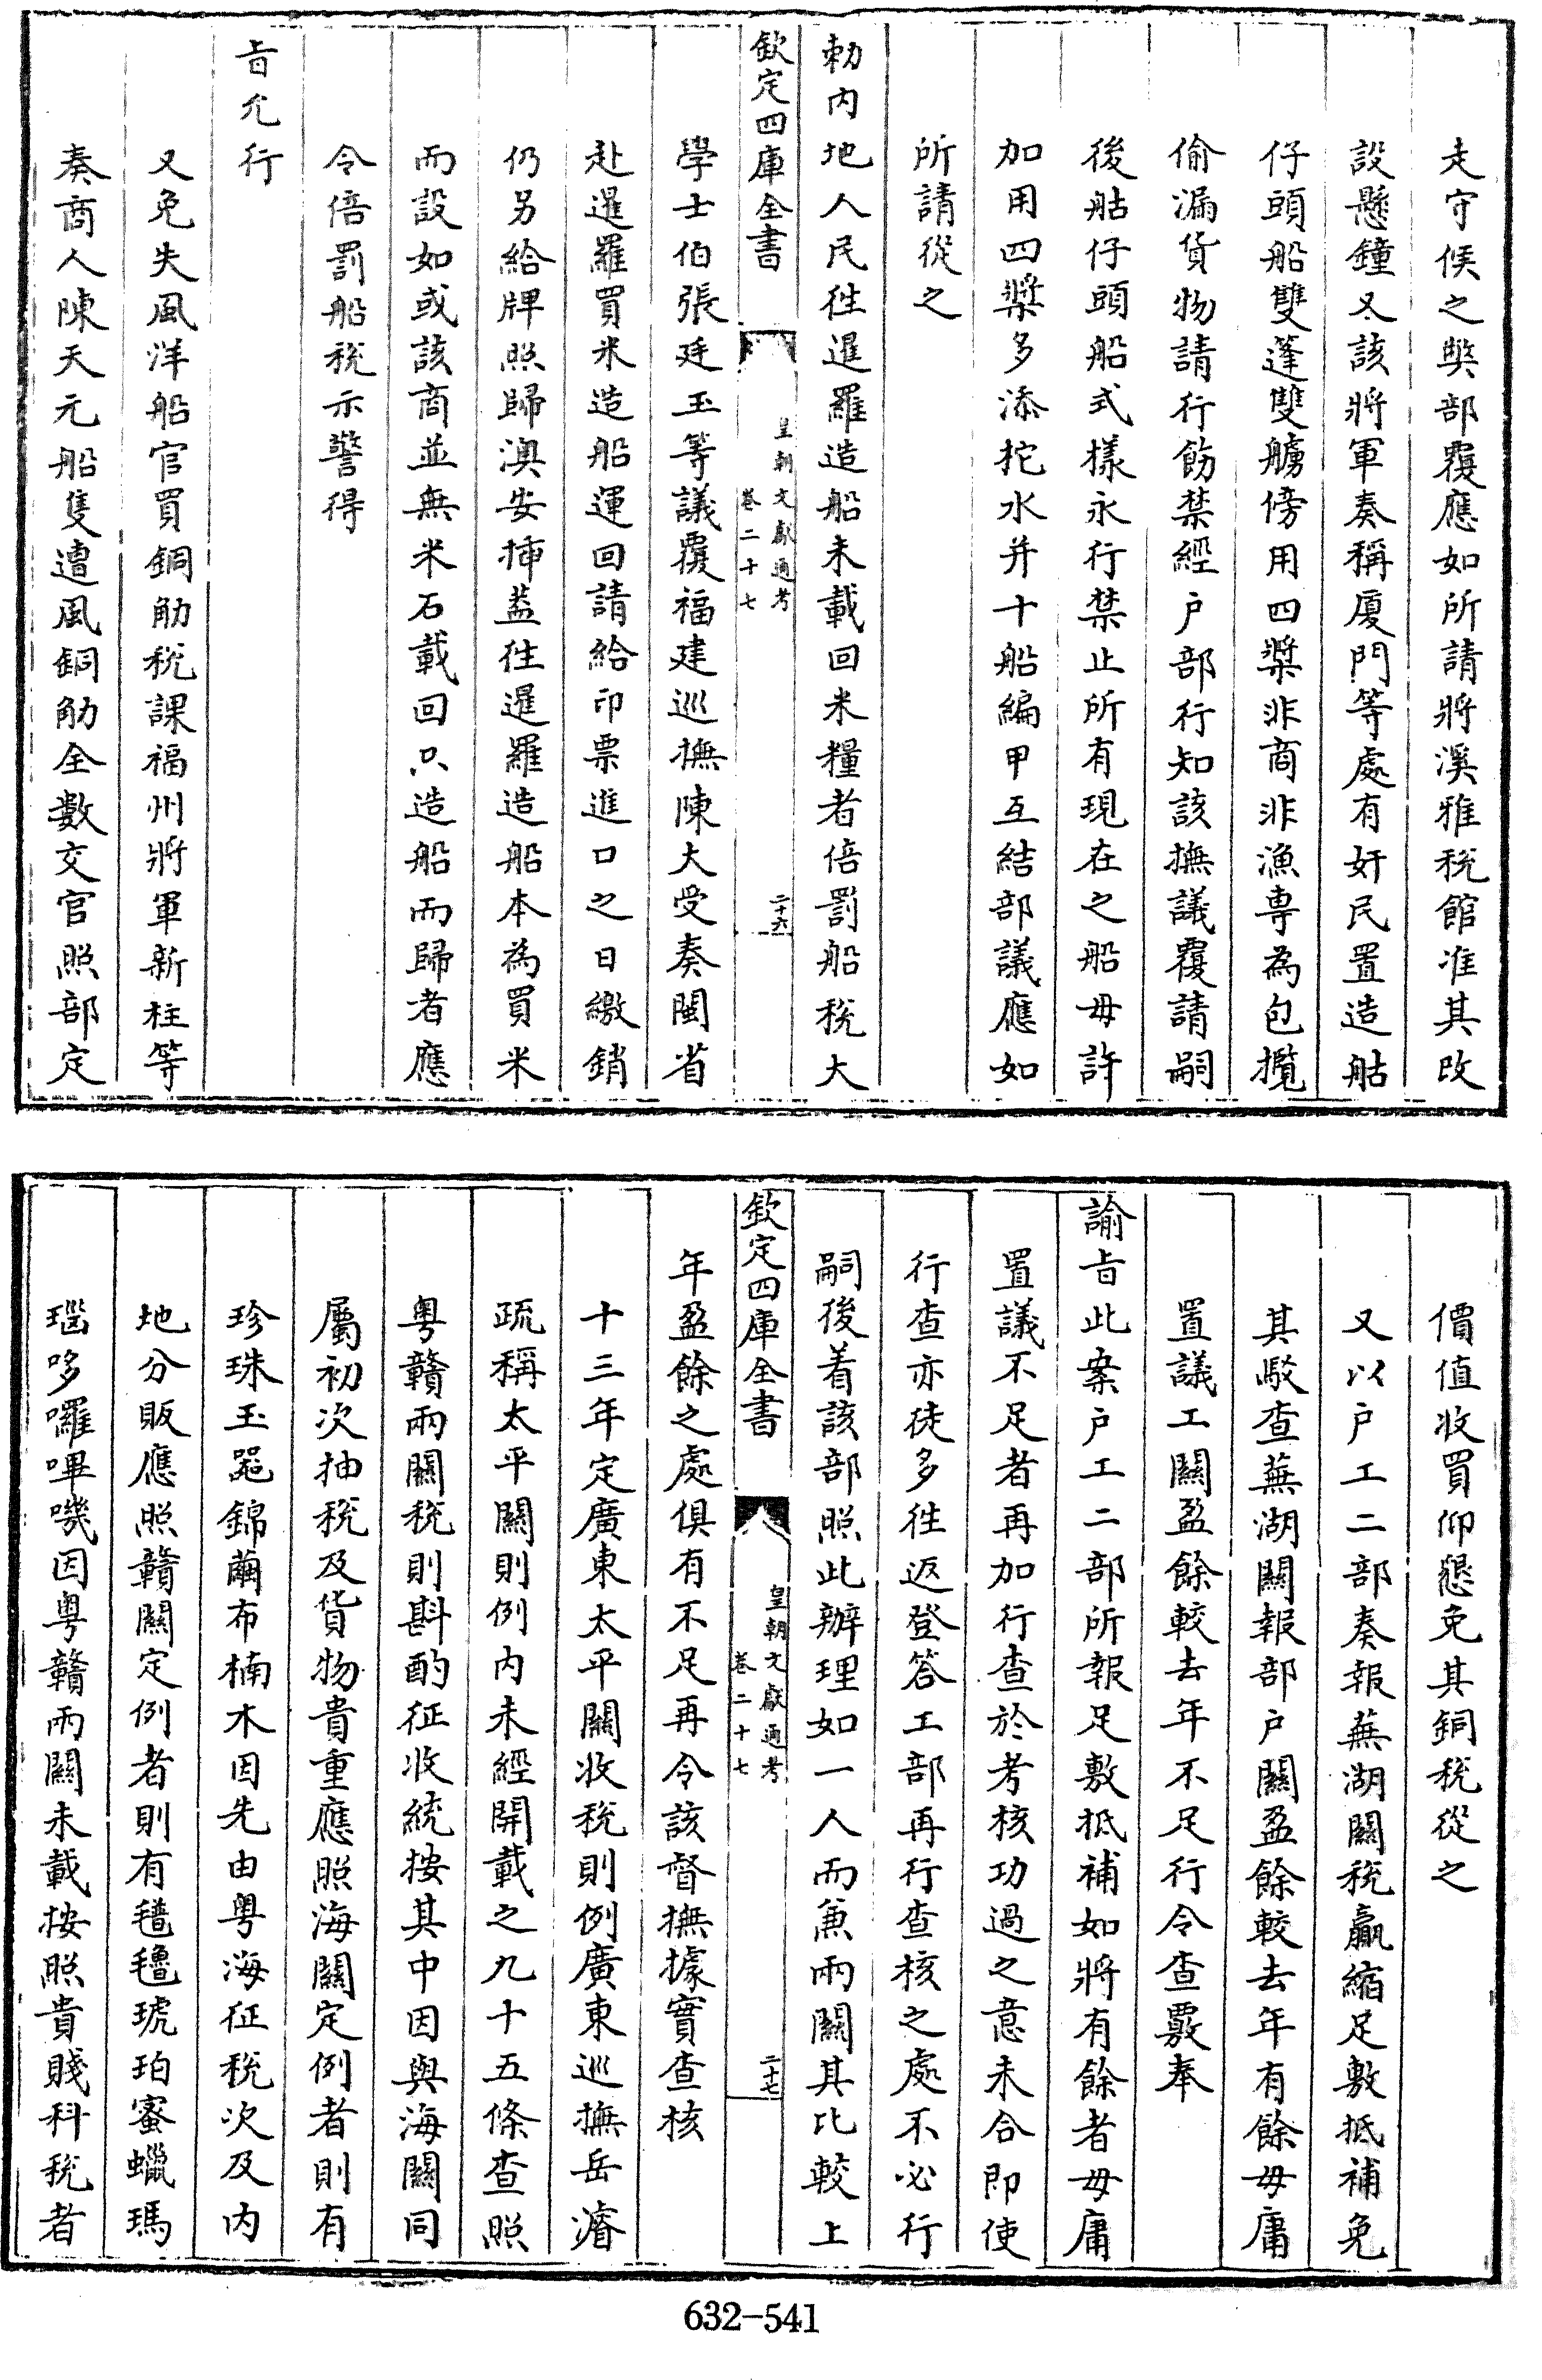 走守候之弊部覆應如所請將溪雅稅館准其改
設懸鐘又該將軍奏稱厦門等處有奸民置造䑩
仔頭船雙蓬雙艣傍用四槳非商非漁專為包攬
偷漏貨物請行飭禁經户部行知該撫議覆請嗣
後䑩仔頭船式樣永行禁止所有現在之船毋許
加用四槳多添挖水并十船編甲互結部議應如
所請從之
勅內地人民徃暹羅造船未載回米糧者倍罰船稅大
欽定四庫全書
皇朝文獻通考
卷二十七
二十六
學士伯張廷玉等議覆福建巡撫陳大受奏閩省
赴暹羅買米造船運回請給印票進口之日繳銷
仍另給牌照歸澳安揷葢徃暹羅造船本為買米
而設如或該商並無米石載回只造船而歸者應
令倍罰船稅示警得
㫖允行
又免失風洋船官買銅觔稅課福州將軍新柱等
奏商人陳天元船隻遭風銅觔全數交官照部定
價值收買仰懇免其銅稅從之
又以户工二部奏報蕪湖關稅贏縮足敷抵補免
其駁查蕪湖關報部户關盈餘較去年有餘毋庸
置議工關盈餘較去年不足行令查覈奉
諭㫖此案户工二部所報足敷抵補如將有餘者毋庸
置議不足者再加行查於考核功過之意未合即使
行查亦徒多徃返登答工部再行查核之處不必行
嗣後着該部照此辦理如一人而兼兩關其比較上
欽定四庫全書
皇朝文獻通考
卷二十七
二十七
年盈餘之處俱有不足再令該督撫據實查核
十三年定廣東太平關收稅則例廣東巡撫岳濬
疏稱太平關則例內未經開載之九十五條查照
粤贛兩關稅則斟酌征收統按其中因與海關同
屬初次抽稅及貨物貴重應照海關定例者則有
珍珠玉器錦繭布楠木因先由粤海征稅次及內
地分販應照贛關定例者則有氆氇琥珀蜜蠟瑪
瑙哆囉嗶嘰因粤贛兩關未載按照貴賤科稅者
632-541